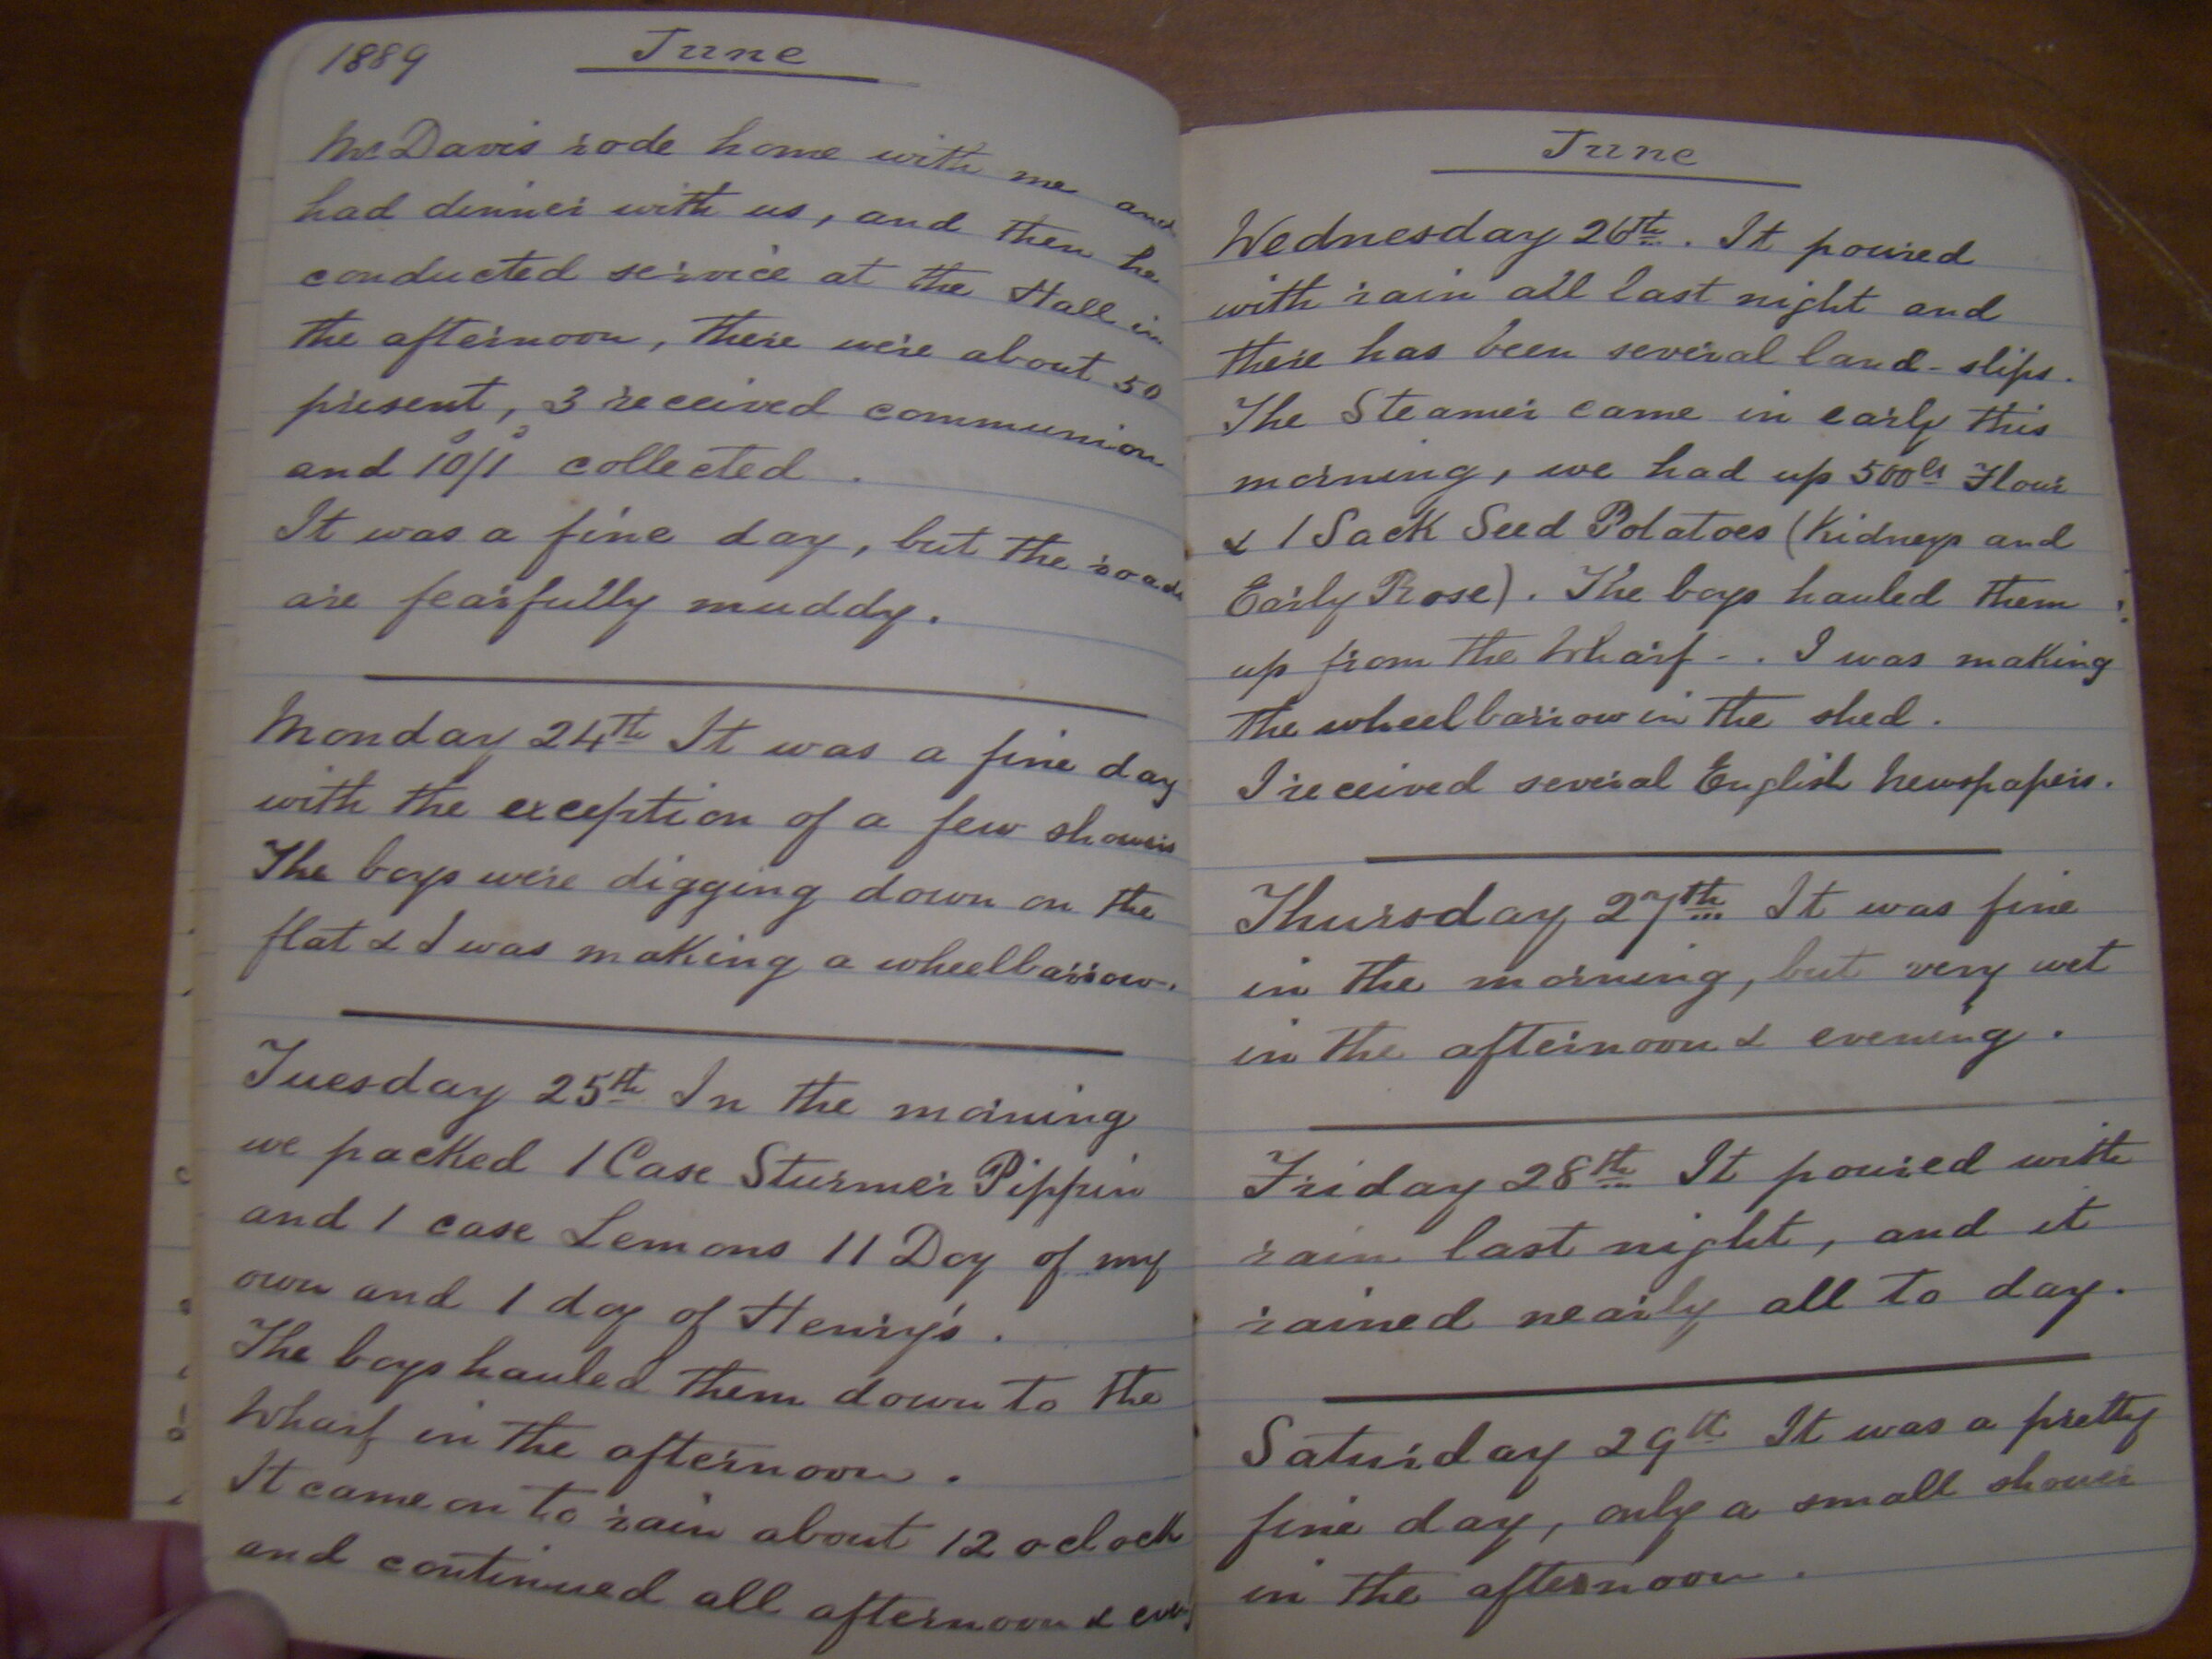 1889 June
Mr Davis rode home with me and
had dinner with us, and then he
conducted service at the Hall in
the afternoon, there were about 50
present, 3 received communion
and 10/1 collected.
It was a fine day, but the roads
are fearfully muddy.
Monday 24th It was a fine day
with the exception of a few showers
The boys were digging down on the
flat & I was making a wheelbarrow.
Tuesday 25th In the morning
we packed 1 Case Sturmer Pippin
and 1 case Lemons 11 Doz of my
own and 1 doz of Henry's.
The boys hauled them down to the
Wharf in the afternoon.
It came on to rain about 12 o clock
and continued all afternoon &
June
Wednesday 26th. It poured
with rain all last night and
there has been several land-slips.
The Steamer came in early this
morning, we had up 500 lbs Flour
& 1 Sack Seed Potatoes (Kidneys and
Early Rose). The boys hauled them
up from the Wharf -. I was making
the wheelbarrow in the shed.
I received several English Newspapers.
Thursday 27th It was fine
in the morning, but very wet
in the afternoon & evening.
Friday 28th It poured with
rain last night, and it
rained nearly all to day.
Saturday 29th It was a pretty
fine day, only a small shower
in the afternoon.